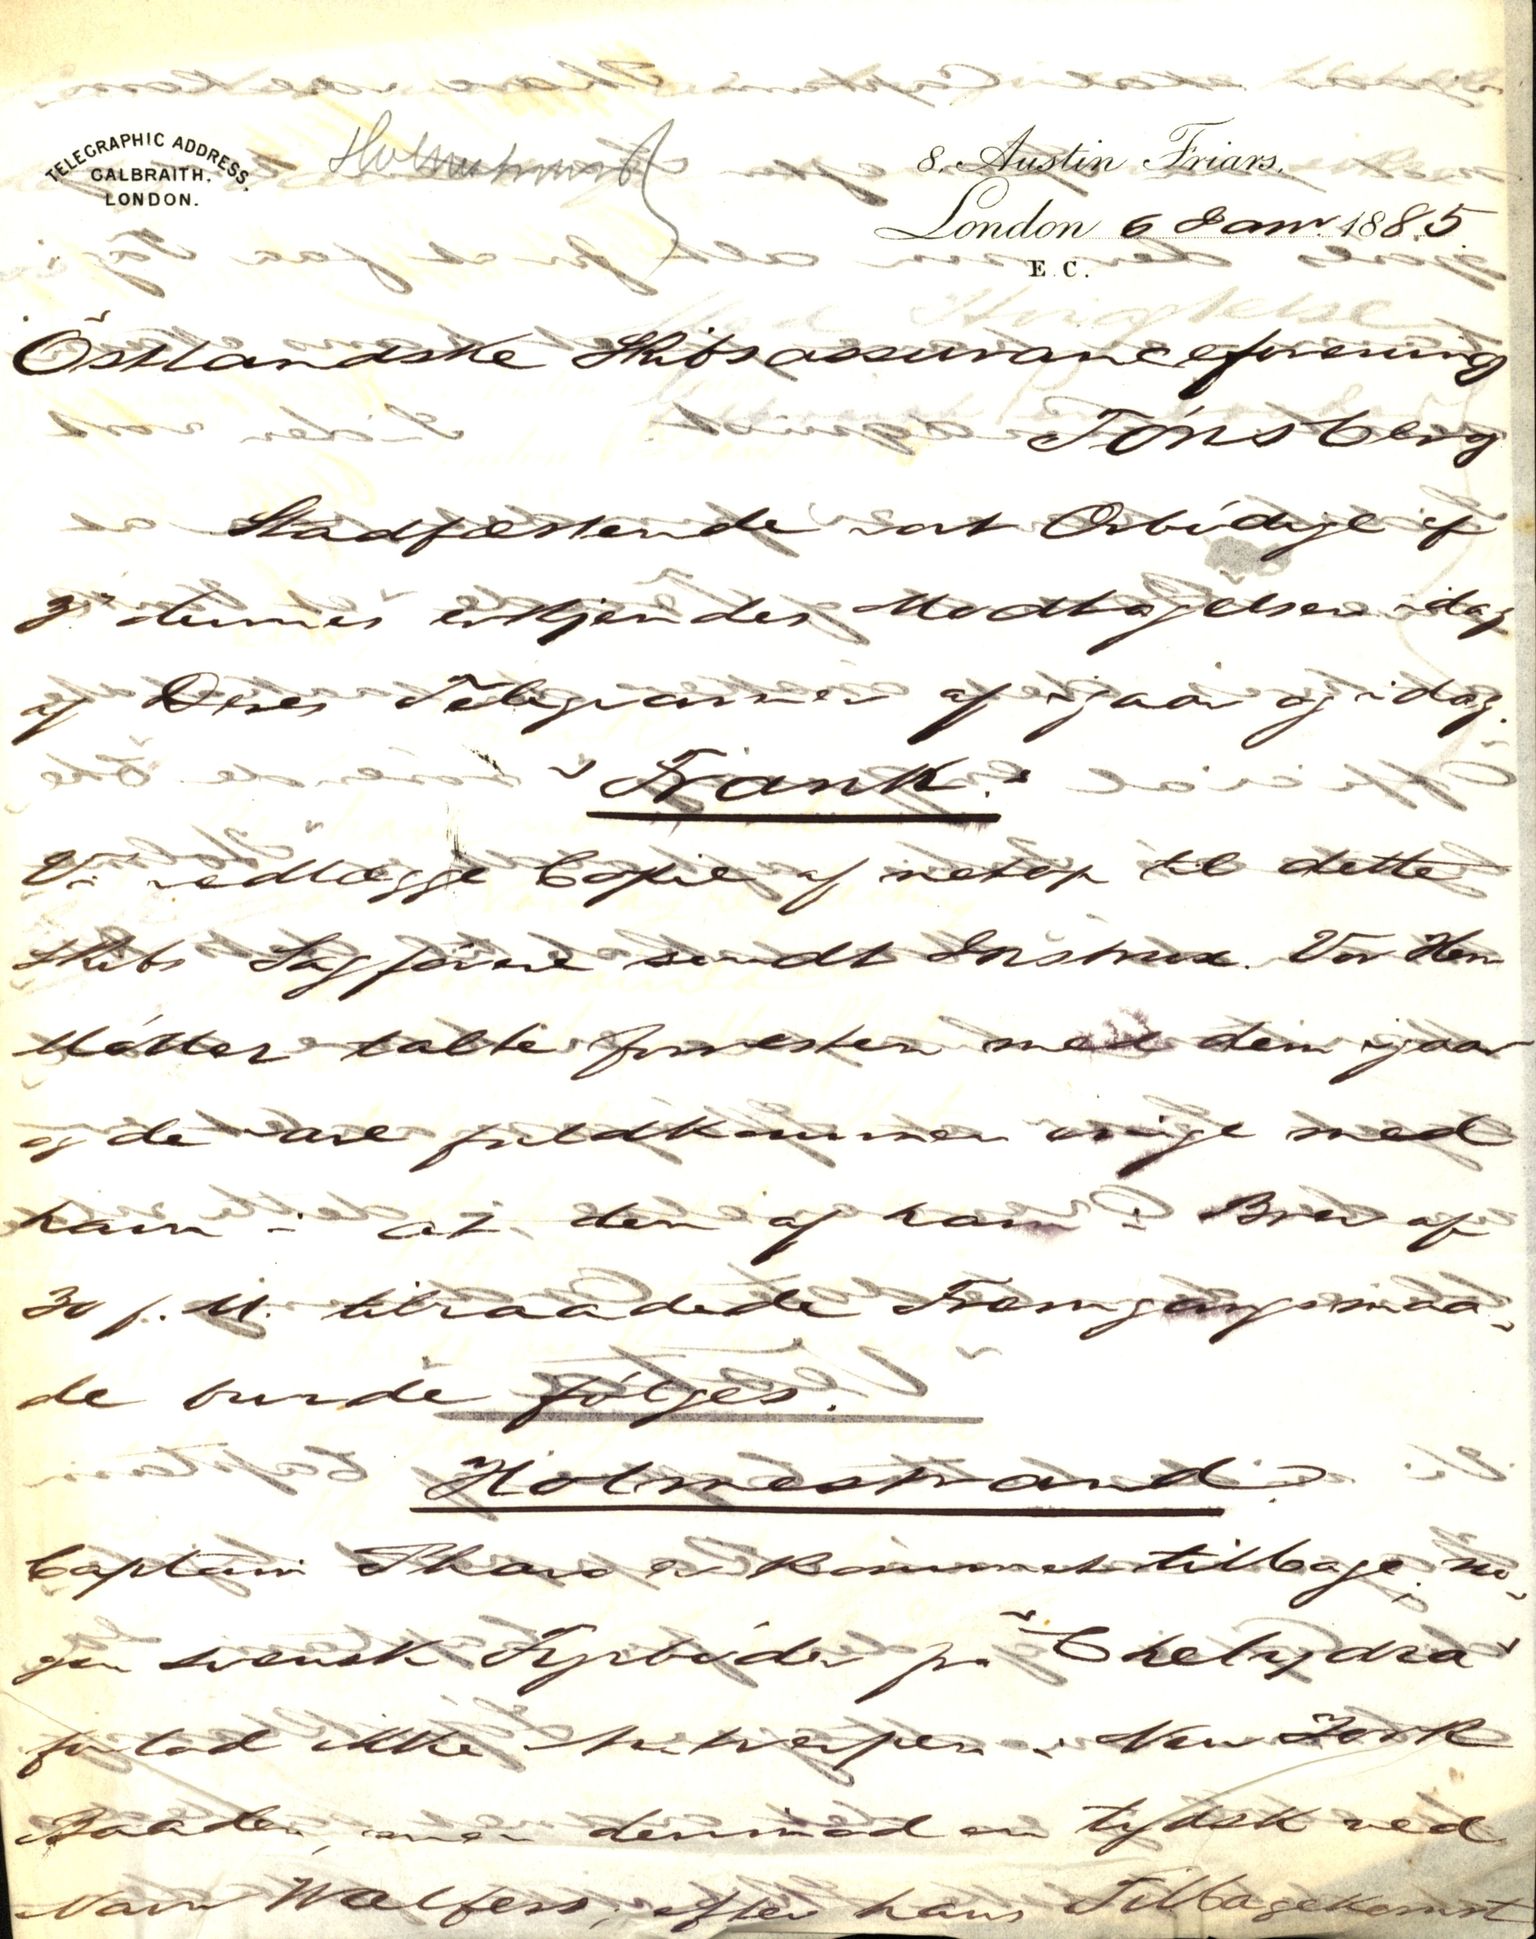 TELEGRAPHIC ADDRESS.
GALBRAITH.
LONDON.
Holmestrand
8. Austin Friars.
London 6 Janr. 1885
E. C.
Östlandske Skibsassuranceforening
Tönsberg
Stadfæstende vort Ærbödige af
3die dennes erkjendes Modtagelsen idag
af Deres Telegrammer af igaar og idag.
"Frank."
Vi vedlægge Copie af netop til dette
Skibs Sagförere sendt Instrux. Vor Herr
Möller talte forresten med dem igaar
og de vare fuldkommen enige med
ham i at den af ham i Brev af
30 f. M. tilraadede Fremgangsmaa-
de burde fölges.
Holmestrand.
Captain Thare er kommet tilbage; no-
gen svensk Fyrböder fra "Chelydra"
forlod ikke Antwerpen i New York
Baaden, men derimod en tydsk ved
Navn Wolfers; efter hans Tilbagekomst